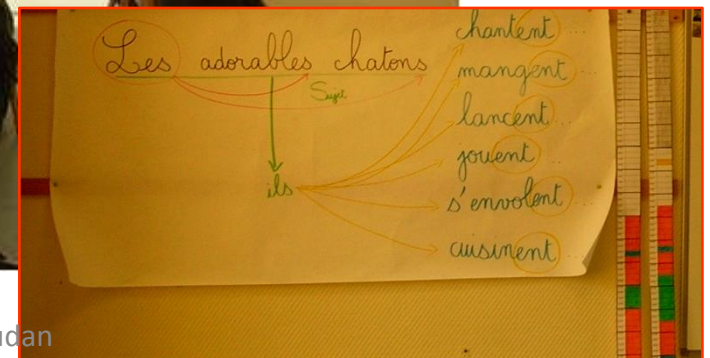 Les adorables chatons
Sujet
ils
chantent ...
mangent ...
lancent ...
jouent ...
s'envolent ...
cuisinent ...
udan